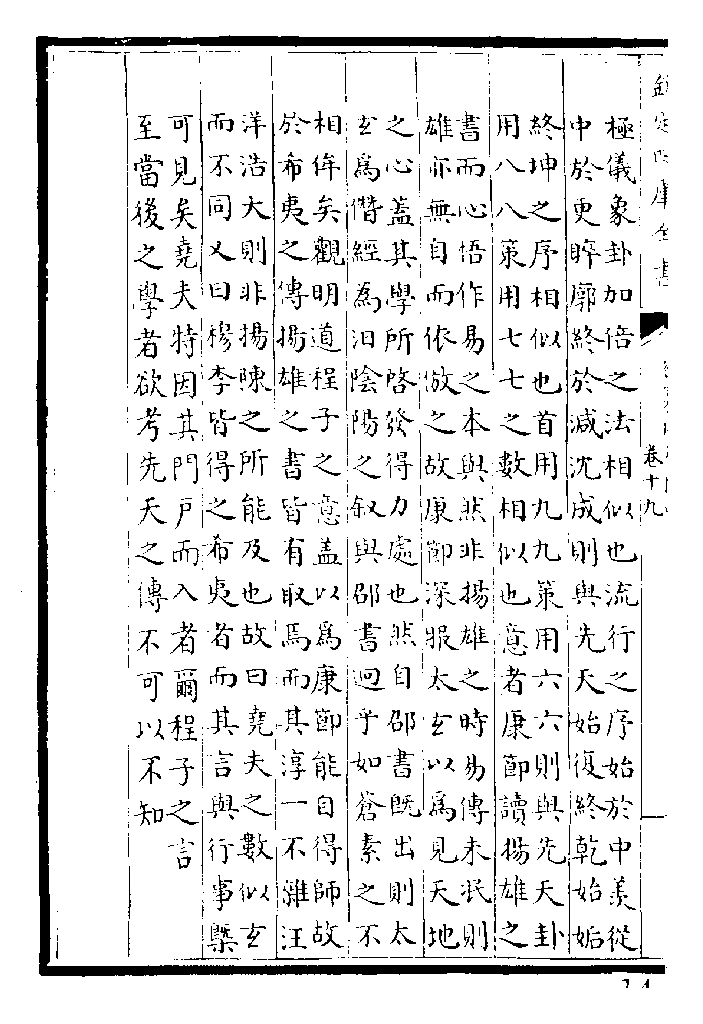 欽定四庫全書
卷十九
極儀象卦加倍之法相似也流行之序始於中羨從
中於更睟廓終於減沈成則與先天始復終乾始姤
終坤之序相似也首用九九策用六六則與先天卦
用八八策用七七之數相似也意者康節讀揚雄之
書而心悟作易之本與然非揚雄之時易傳未泯則
雄亦無自而依倣之故康節深服太玄以爲見天地
之心蓋其學所啓發得力處也然自邵書既出則太
玄爲僭經爲汩陰陽之叙與邵書迥乎如蒼素之不
相侔矣觀明道程子之意蓋以爲康節能自得師故
於希夷之傳揚雄之書皆有取焉而其淳一不雜汪
洋浩大則非揚陳之所能及也故曰堯夫之數似玄
而不同又曰穆李皆得之希夷者而其言與行事槩
可見矣堯夫特因其門戶而入者爾程子之言
至當後之學者欲考先天之傳不可以不知